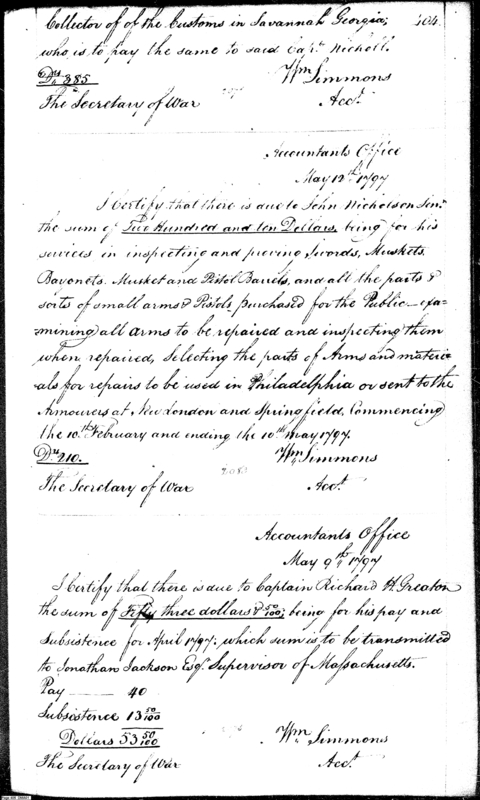 Collector of of the Customs in Savannah Georgia; 404
who is to pay the same to said Capt. Nicholl.
Drs. 385 Wm Simmons
The Secretary of War Acct.
Accountants Office
May 12th 1797
I Certify that there is due to John Nicholson Senr.
the sum of Two Hundred and ten Dollars, being for his
services in inspecting and proving Swords, Muskets,
Bayonets, Musket and Pistol Barrels, and all the parts &
sorts of small arms & Pistols, purchased for the Public - exa-
mining all arms to be repaired and inspecting them
when repaired, Selecting the parts of Arms and materi-
als for repairs to be used in Philadelphia or sent to the
Armourers at New London and Springfield, Commencing
the 10th February and ending the 10th May 1797.
Drs 210. Wm Simmons
The Secretary of War Acct.
Accountants Office
May 9th 1797
I Certify that there is due to Captain Richard H. Greaton
the sum of Fifty three dollars & 50/100; being for his pay and
Subsistence for April 1797: which sum is to be transmitted
to Jonathan Jackson Esqr. Supervisor of Massachusetts.
Pay 40
Subsistence 13 50/100
Dollars 53 50/100 Wm Simmons
The Secretary of War Acct.